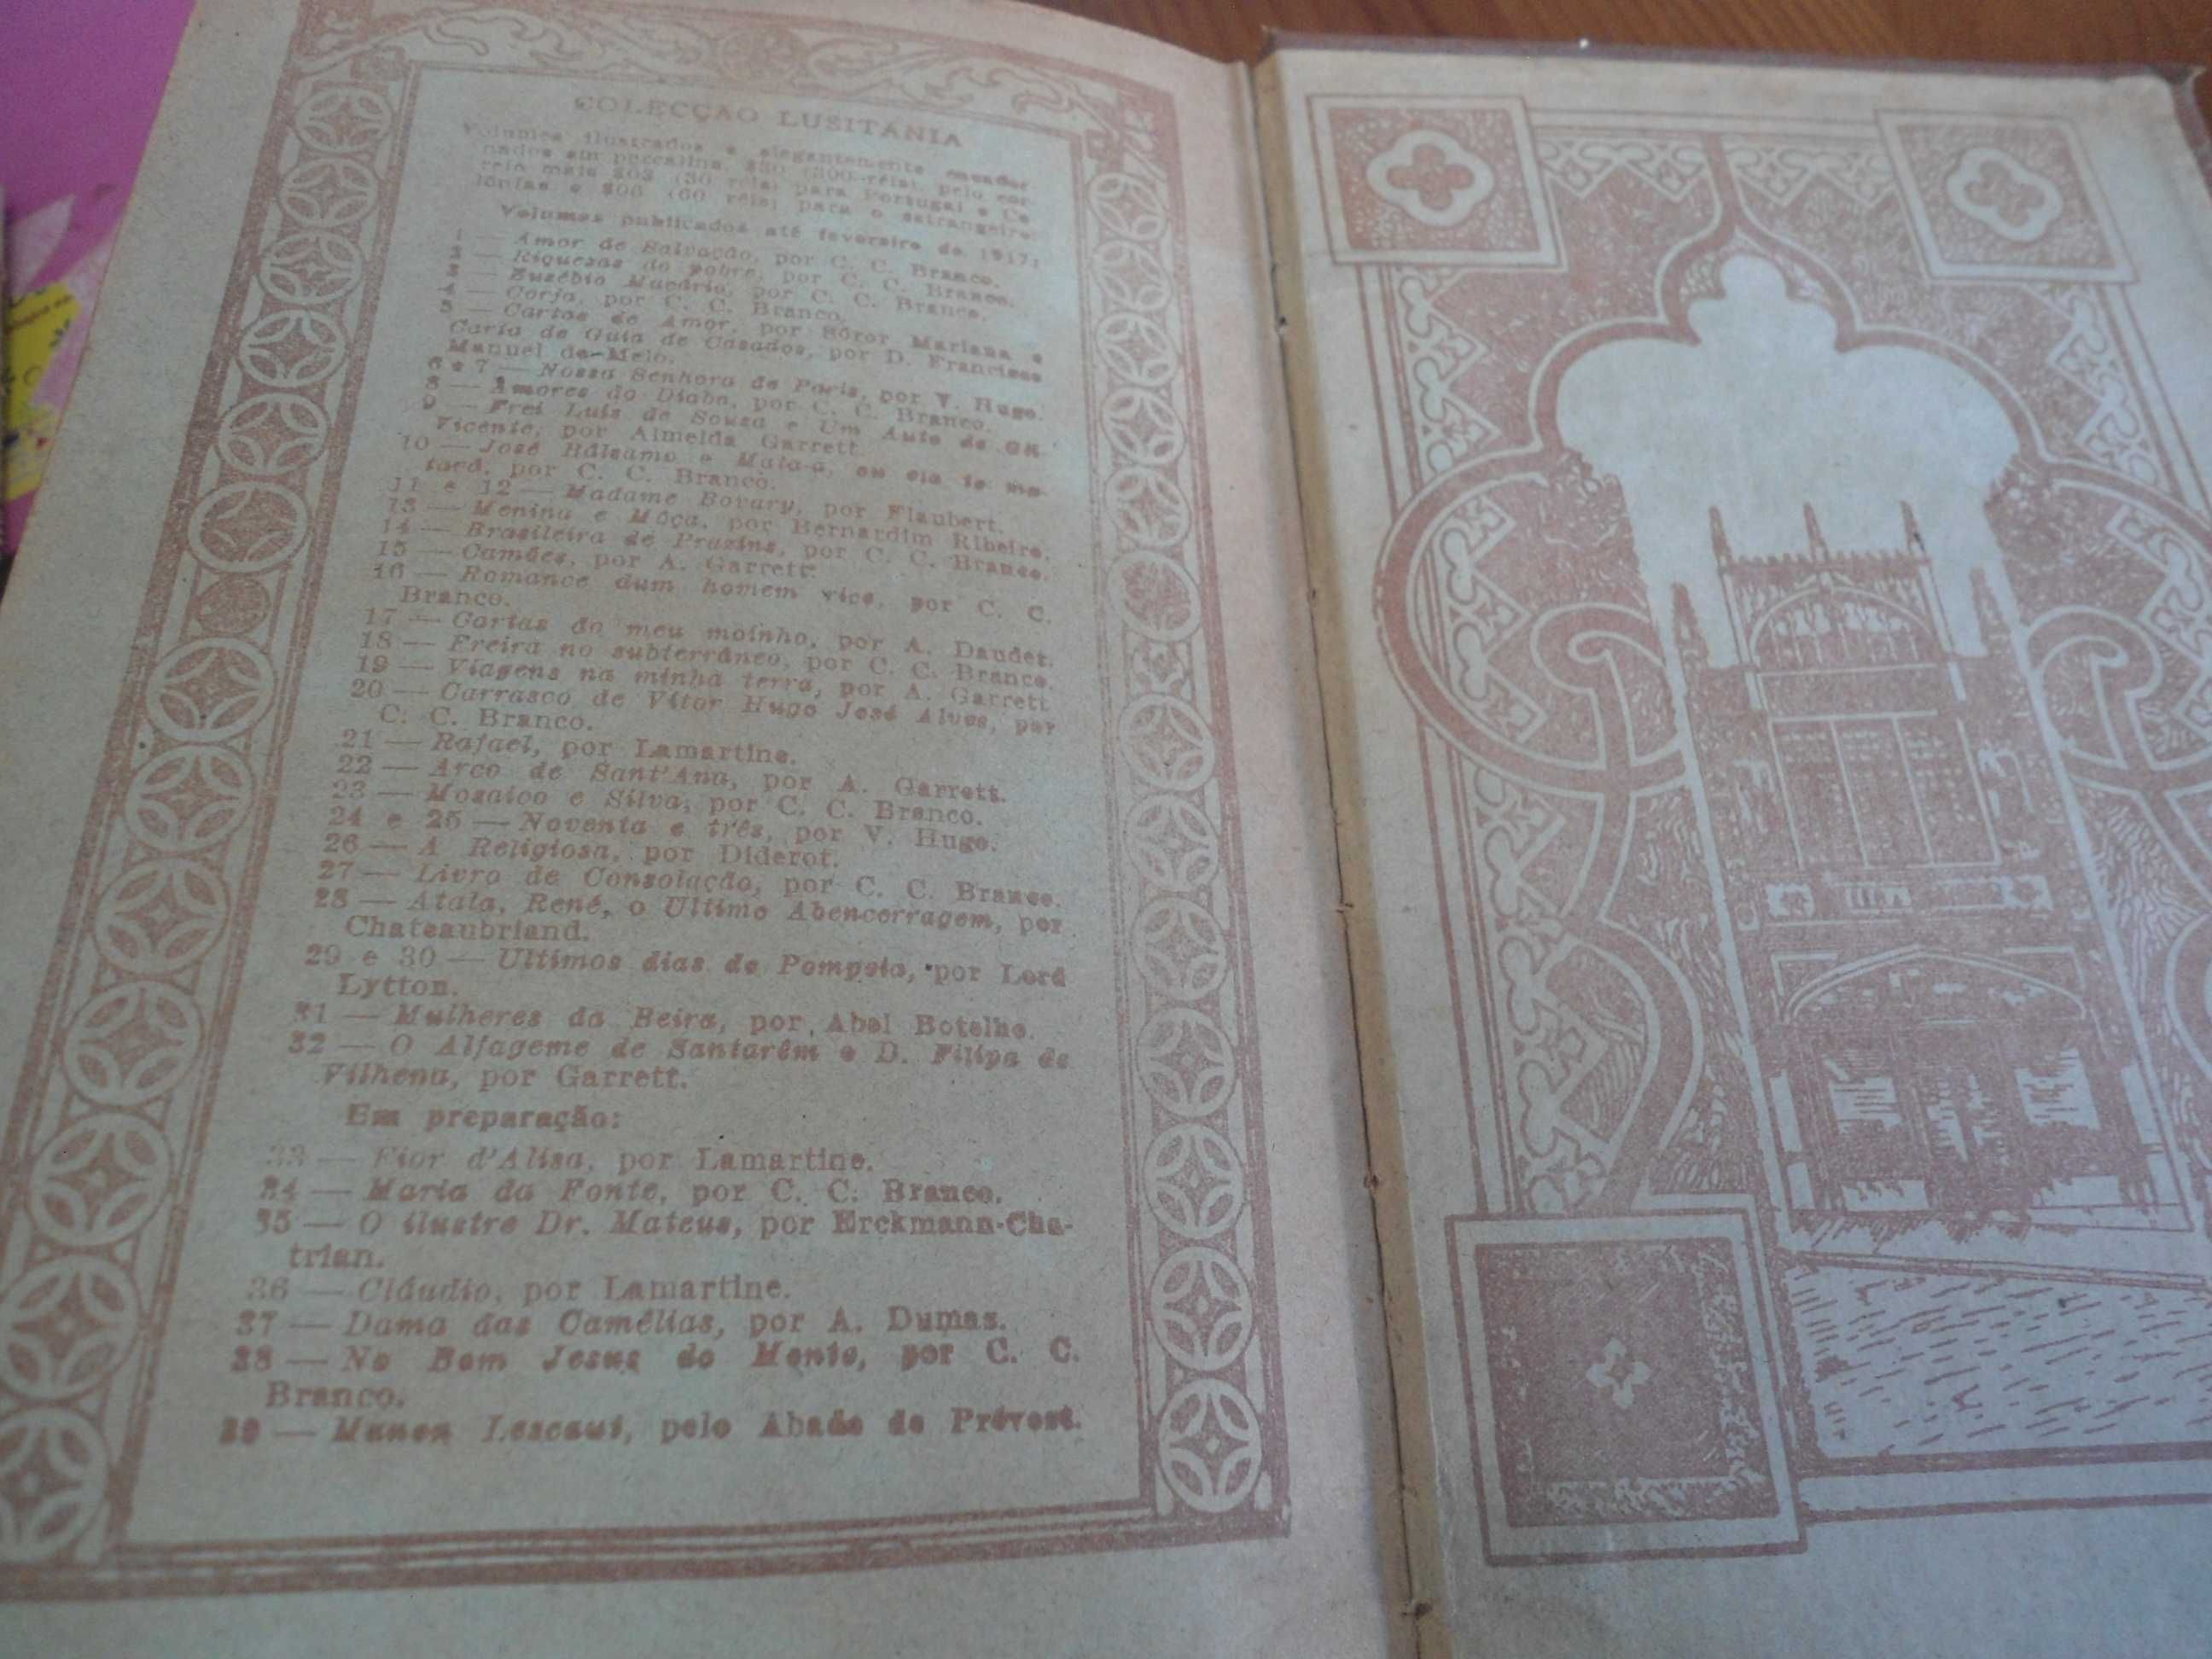 COLECÇÃO LUSITANIA
Volumes ilustrados e elegantemente encader
nados em percalina, $30 (300 réis), pelo cor
reio mais $03 (30 réis) para Portugal e Co
lónias e $06 (60 réis) para o estrangeiro
Volumes publicados até fevereiro de 1917:
1 — Amor de Salvação, por C. C. Branco.
2 — Riquesas do pobre, por C. C. Branco.
3 — Eusébio Macário, por C. C. Branco.
4 — Corja, por C. C. Branco.
5 — Cartas de Amor, por Sóror Mariana e
Carta de Guia de Casados, por D. Francisco
Manuel de Melo.
6 e 7 — Nossa Senhora de Paris, por V. Hugo.
8 — Amores do Diabo, por C. C. Branco.
9 — Frei Luís de Sousa e Um Auto de Gil
Vicente, por Almeida Garrett.
10 — José Bálsamo e Mata-a, ou ela te ma-
tará, por C. C. Branco.
11 e 12 — Madame Bovary, por Flaubert.
13 — Menina e Môça, por Bernardim Ribeiro.
14 — Brasileira de Prazins, por C. C. Branco.
15 — Camões, por A. Garrett.
16 — Romance dum homem rico, por C. C.
Branco.
17 — Cartas do meu moínho, por A. Daudet.
18 — Freira no subterrâneo, por C. C. Branco.
19 — Viagens na minha terra, por A. Garrett
20 — Carrasco de Vítor Hugo José Alves, por
C. C. Branco.
21 — Rafael, por Lamartine.
22 — Arco de Sant'Ana, por A. Garrett.
23 — Mosaico e Silva, por C. C. Branco.
24 e 25 — Noventa e três, por V. Hugo.
26 — A Religiosa, por Diderot.
27 — Livro de Consolação, por C. C. Branco.
28 — Atala, René, o Ultimo Abencerragem, por
Chateaubriand.
29 e 30 — Ultimos dias de Pompeia, por Lord
Lytton.
31 — Mulheres da Beira, por Abel Botelho.
32 — O Alfageme de Santarêm e D. Filipa de
Vilhena, por Garrett.
Em preparação:
33 — Fior d'Alisa, por Lamartine.
34 — Maria da Fonte, por C. C. Branco.
35 — O ilustre Dr. Mateus, por Erckmann-Cha-
trian.
36 — Cláudio, por Lamartine.
37 — Dama das Camélias, por A. Dumas.
38 — No Bom Jesus do Monte, por C. C.
Branco.
39 — Manon Lescaut, pelo Abade de Prévost.